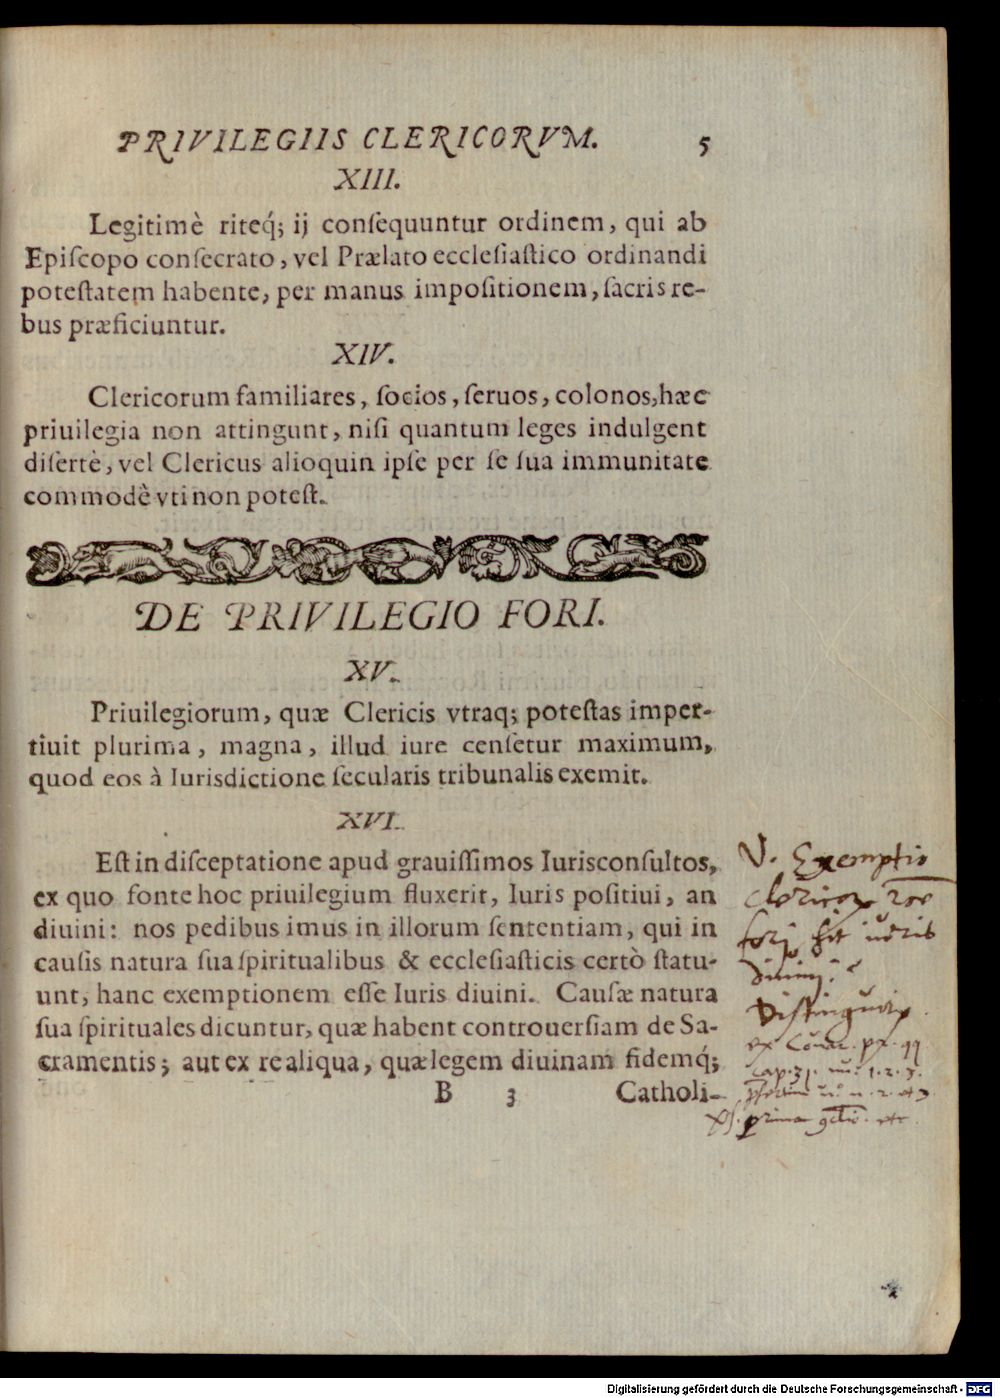 PRIVILEGIIS CLERICORVM. 5
XIII.
Legitimè riteq́; ij conſequuntur ordinem, qui ab
Epiſcopo conſecrato, vel Prælato eccleſiaſtico ordinandi
poteſtatem habente, per manus impoſitionem, ſacris re-
bus præficiuntur.
XIV.
Clericorum familiares, ſocios, ſeruos, colonos, hæc
priuilegia non attingunt, niſi quantum leges indulgent
diſertè, vel Clericus alioquin ipſe per ſe ſua immunitate
commodè vti non poteſt.
DE PRIVILEGIO FORI.
XV.
Priuilegiorum, quæ Clericis vtraq; poteſtas imper-
tiuit plurima, magna, illud iure cenſetur maximum,
quod eos à Iurisdictione ſecularis tribunalis exemit.
XVI.
Eſt in diſceptatione apud grauiſſimos Iurisconſultos,
ex quo fonte hoc priuilegium fluxerit, Iuris poſitiui, an
diuini: nos pedibus imus in illorum ſententiam, qui in
cauſis natura ſua ſpiritualibus & eccleſiaſticis certò ſtatu-
unt, hanc exemptionem eſſe Iuris diuini. Cauſæ natura
ſua ſpirituales dicuntur, quæ habent controuerſiam de Sa-
cramentis; aut ex re aliqua, quæ legem diuinam fidemq́;
B 3 Catholi-
V. Exemptio
fori sit iuris
diuini?
prima
etc
Digitalisierung gefördert durch die Deutsche Forschungsgemeinschaft - DFG